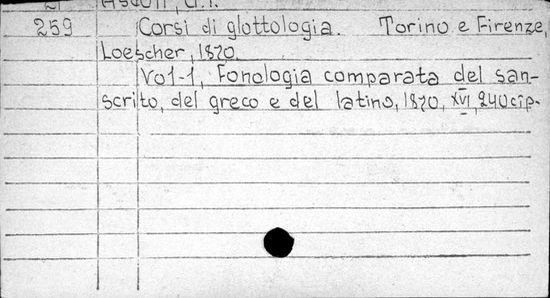 21 Ascoli, G.I.
259 Corsi di glottologia. Torino e Firenze,
Loescher, 1870.
Vol-1, Fonologia comparata del san-
scrito, del greco e del latino, 1870, XVI, 240 p.